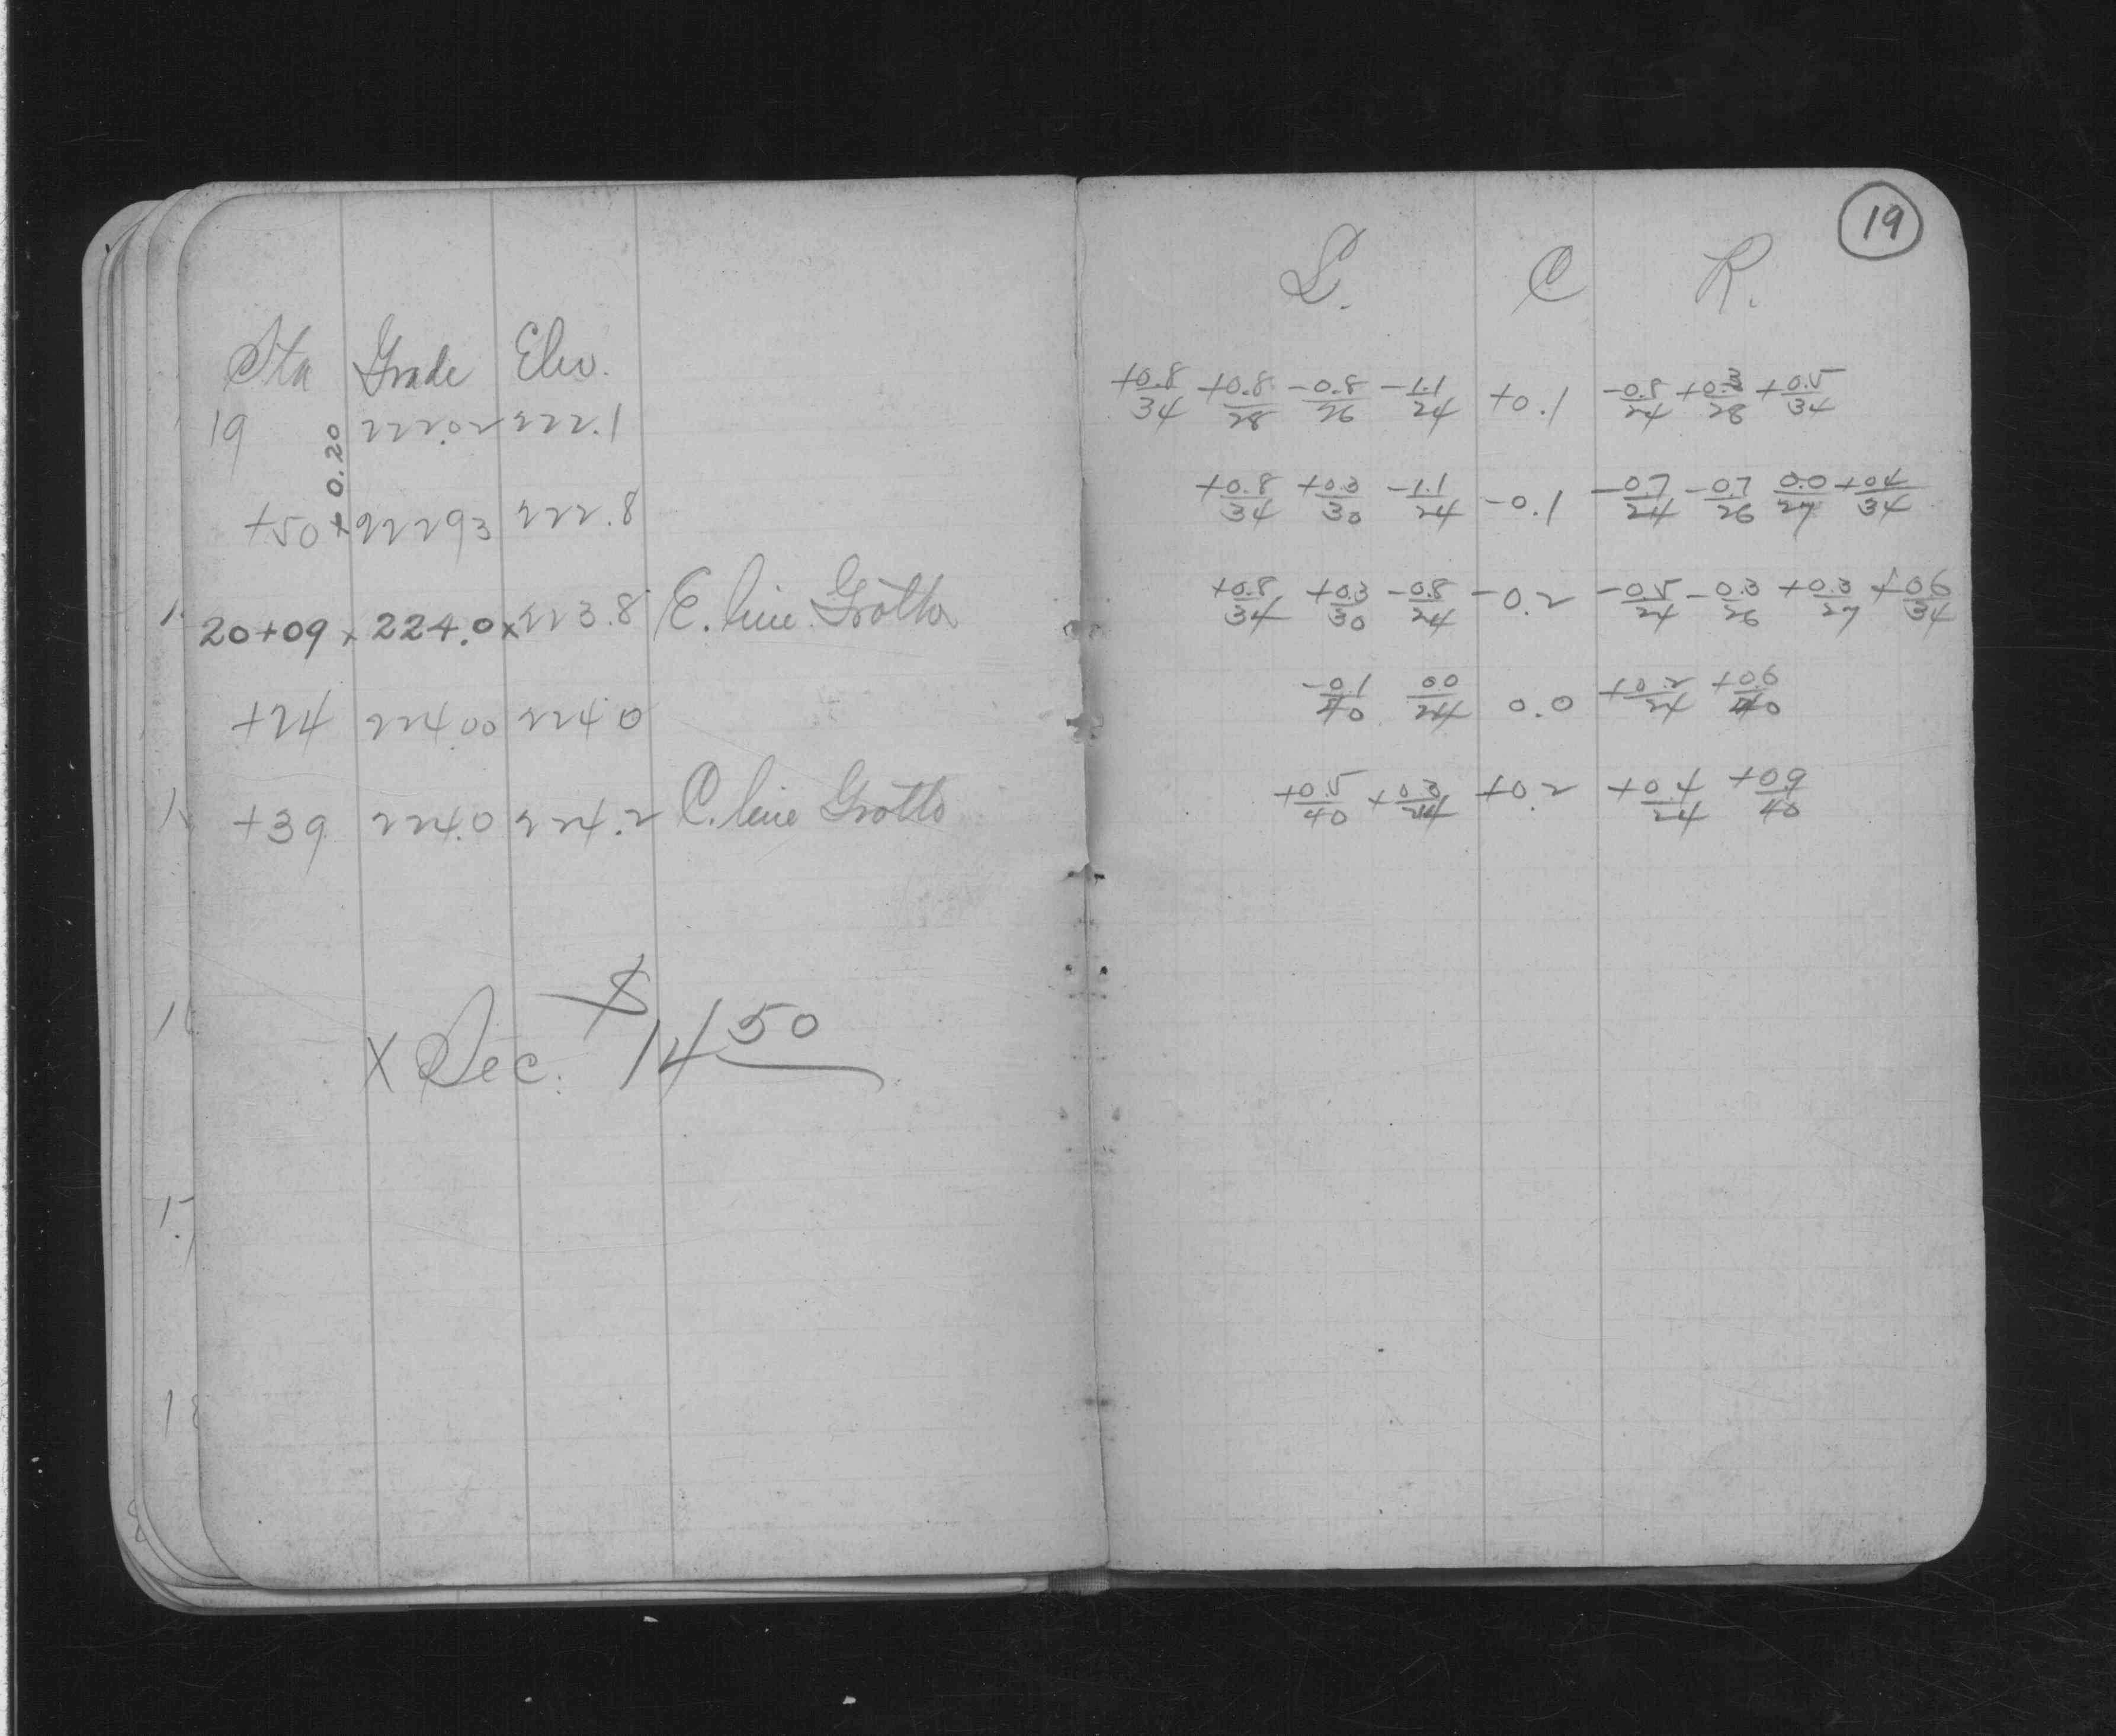 Sta Grade Elev.
19 222.02 222.1
+0.20
+50 222 93 222.8
20+09 x 224.0 x 223.8 E. line Grotto
+24 224.00 224.0
+39 224.0 224.2 C. line Grotto
X Sec. $14 50
19
L. C R.
+0.8/34 +0.8/28 -0.8/26 -1.1/24 +0.1 -0.8/24 +0.3/28 +0.5/34
+0.8/34 +0.3/30 -1.1/24 -0.1 -0.7/24 -0.7/26 0.0/27 +04/34
+0.8/34 +0.3/30 -0.8/24 -0.2 -0.5/24 -0.3/26 +0.3/27 +06/34
-0.1/40 00/24 0.0 +0.2/24 +06/40
+0.5/40 +0.3/24 +0.2 +0.4/24 +09/40